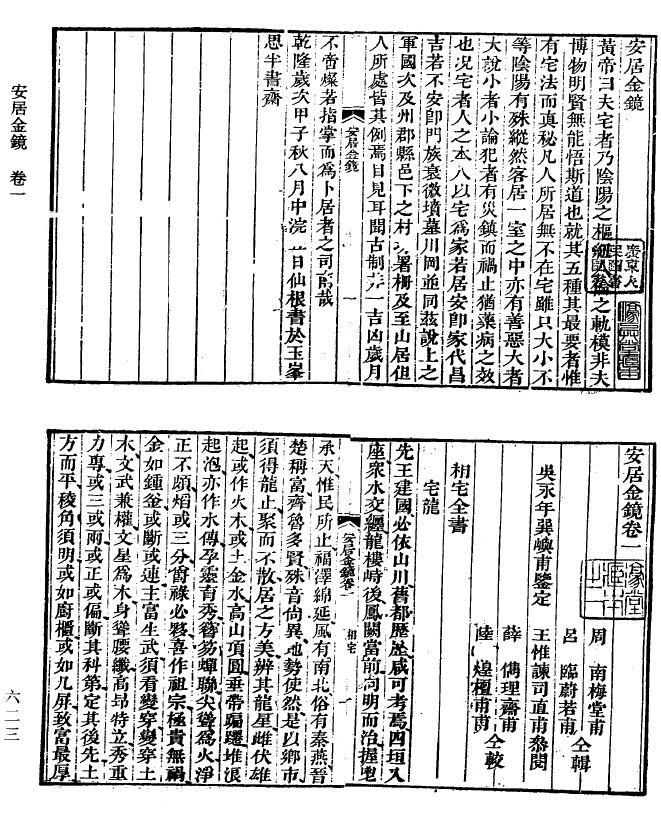 安居金鏡
黃帝曰夫宅者乃陰陽之樞紐人倫之軌模非夫
博物明賢無能悟斯道也就其五種其最要者惟
有宅法而真秘凡人所居無不在宅雖只大小不
等陰陽有殊縱然客居一室之中亦有善惡大者
大說小者小論犯者有災鎮而禍止猶藥病之效
也況宅者人之本人以宅為家若居安卽家代昌
吉若不安卽門族衰微墳墓川岡並同茲說上之
軍國次及州郡縣邑下之村署柵及至山居但
人所處皆其例焉目見耳聞古制一吉凶歲月
安居金鏡 一
不啻燦若指掌而爲卜居者之司南哉
乾隆歲次甲子秋八月中浣日仙根書於玉峯
思半書齋
安居金鏡 卷一
安居金鏡卷一
周南梅堂甫
呂臨蔚若甫 仝輯
吳永年巽嶼甫鑒定
王惟諫司直甫叅閱
薛儁理齋甫
陸煌檀甫甫 仝較
相宅全書
宅龍
先王建國必依山川舊都歷歷咸可考焉四垣入
座衆水交纏龍樓峙後鳳闕當前向明而治握
安居金鏡卷一 相宅 一
承天惟民所止福澤綿延風有南北俗有秦燕晉
楚稱富齊魯多賢殊音尚異地勢使然是以鄉市
須得龍止聚而不散居之方美辨其龍星雌伏雄
起或作火木或土金水高山頂圓垂帶躍堆浪
起泡亦作水傳孕靈育秀簪笏蟬聯尖聳爲火淨
正不頗熖或三分爵祿必夥喜作祖宗極貴無禍
金如鍾釜或斷或連主富生武須看變穿變穿土
木文武兼權文星爲木身聳腰纖高昻特立秀重
力專或三或兩或正或偏斷其科第定其後先土
方而平稜角須明或如厨櫃或如几屏致富最厚
六二三